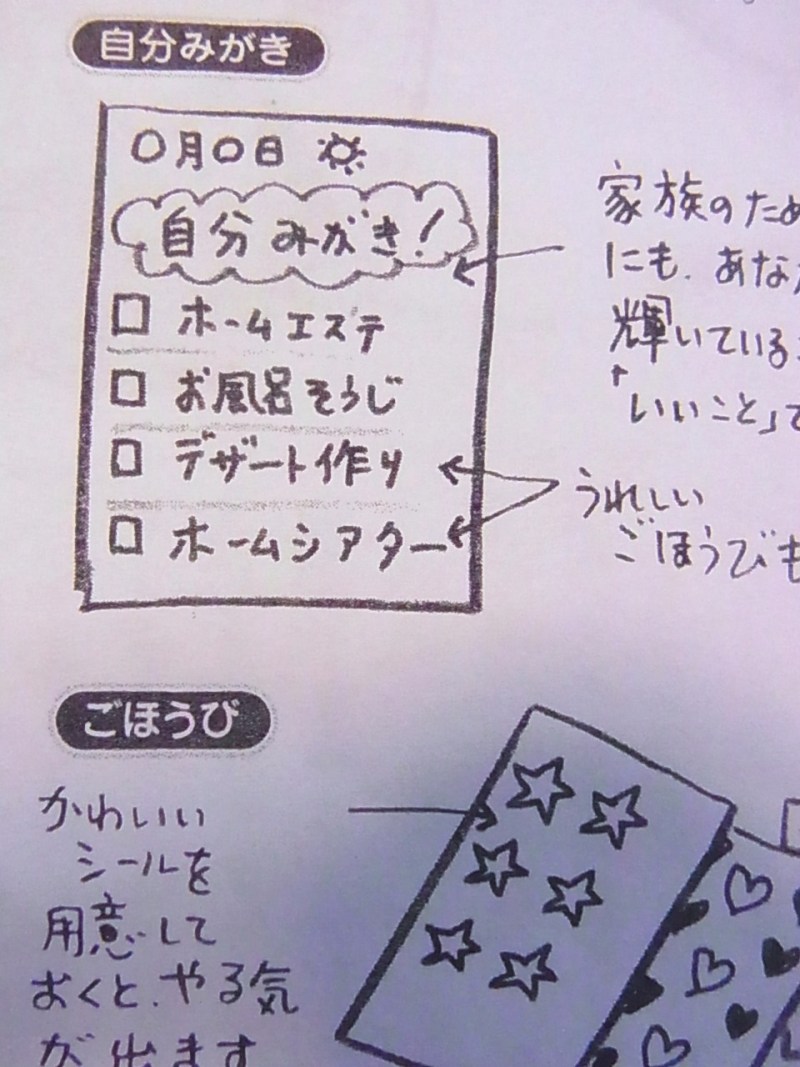 自分みがき
〇月〇日
自分みがき!
□ ホームエステ
□ お風呂そうじ
□ デザート作り
□ ホームシアター
家族のため
にも、あな
輝いている
「いいこと」で
うれしい
ごほうびも
ごほうび
かわいい
シールを
用意して
おくと、やる気
が出ます